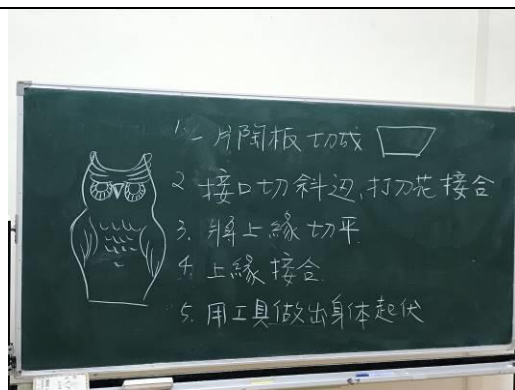 1. 一片陶板切成
2 接口切斜边,打刀花接合
3. 將上緣切平
4. 上緣接合
5. 用工具做出身体起伏